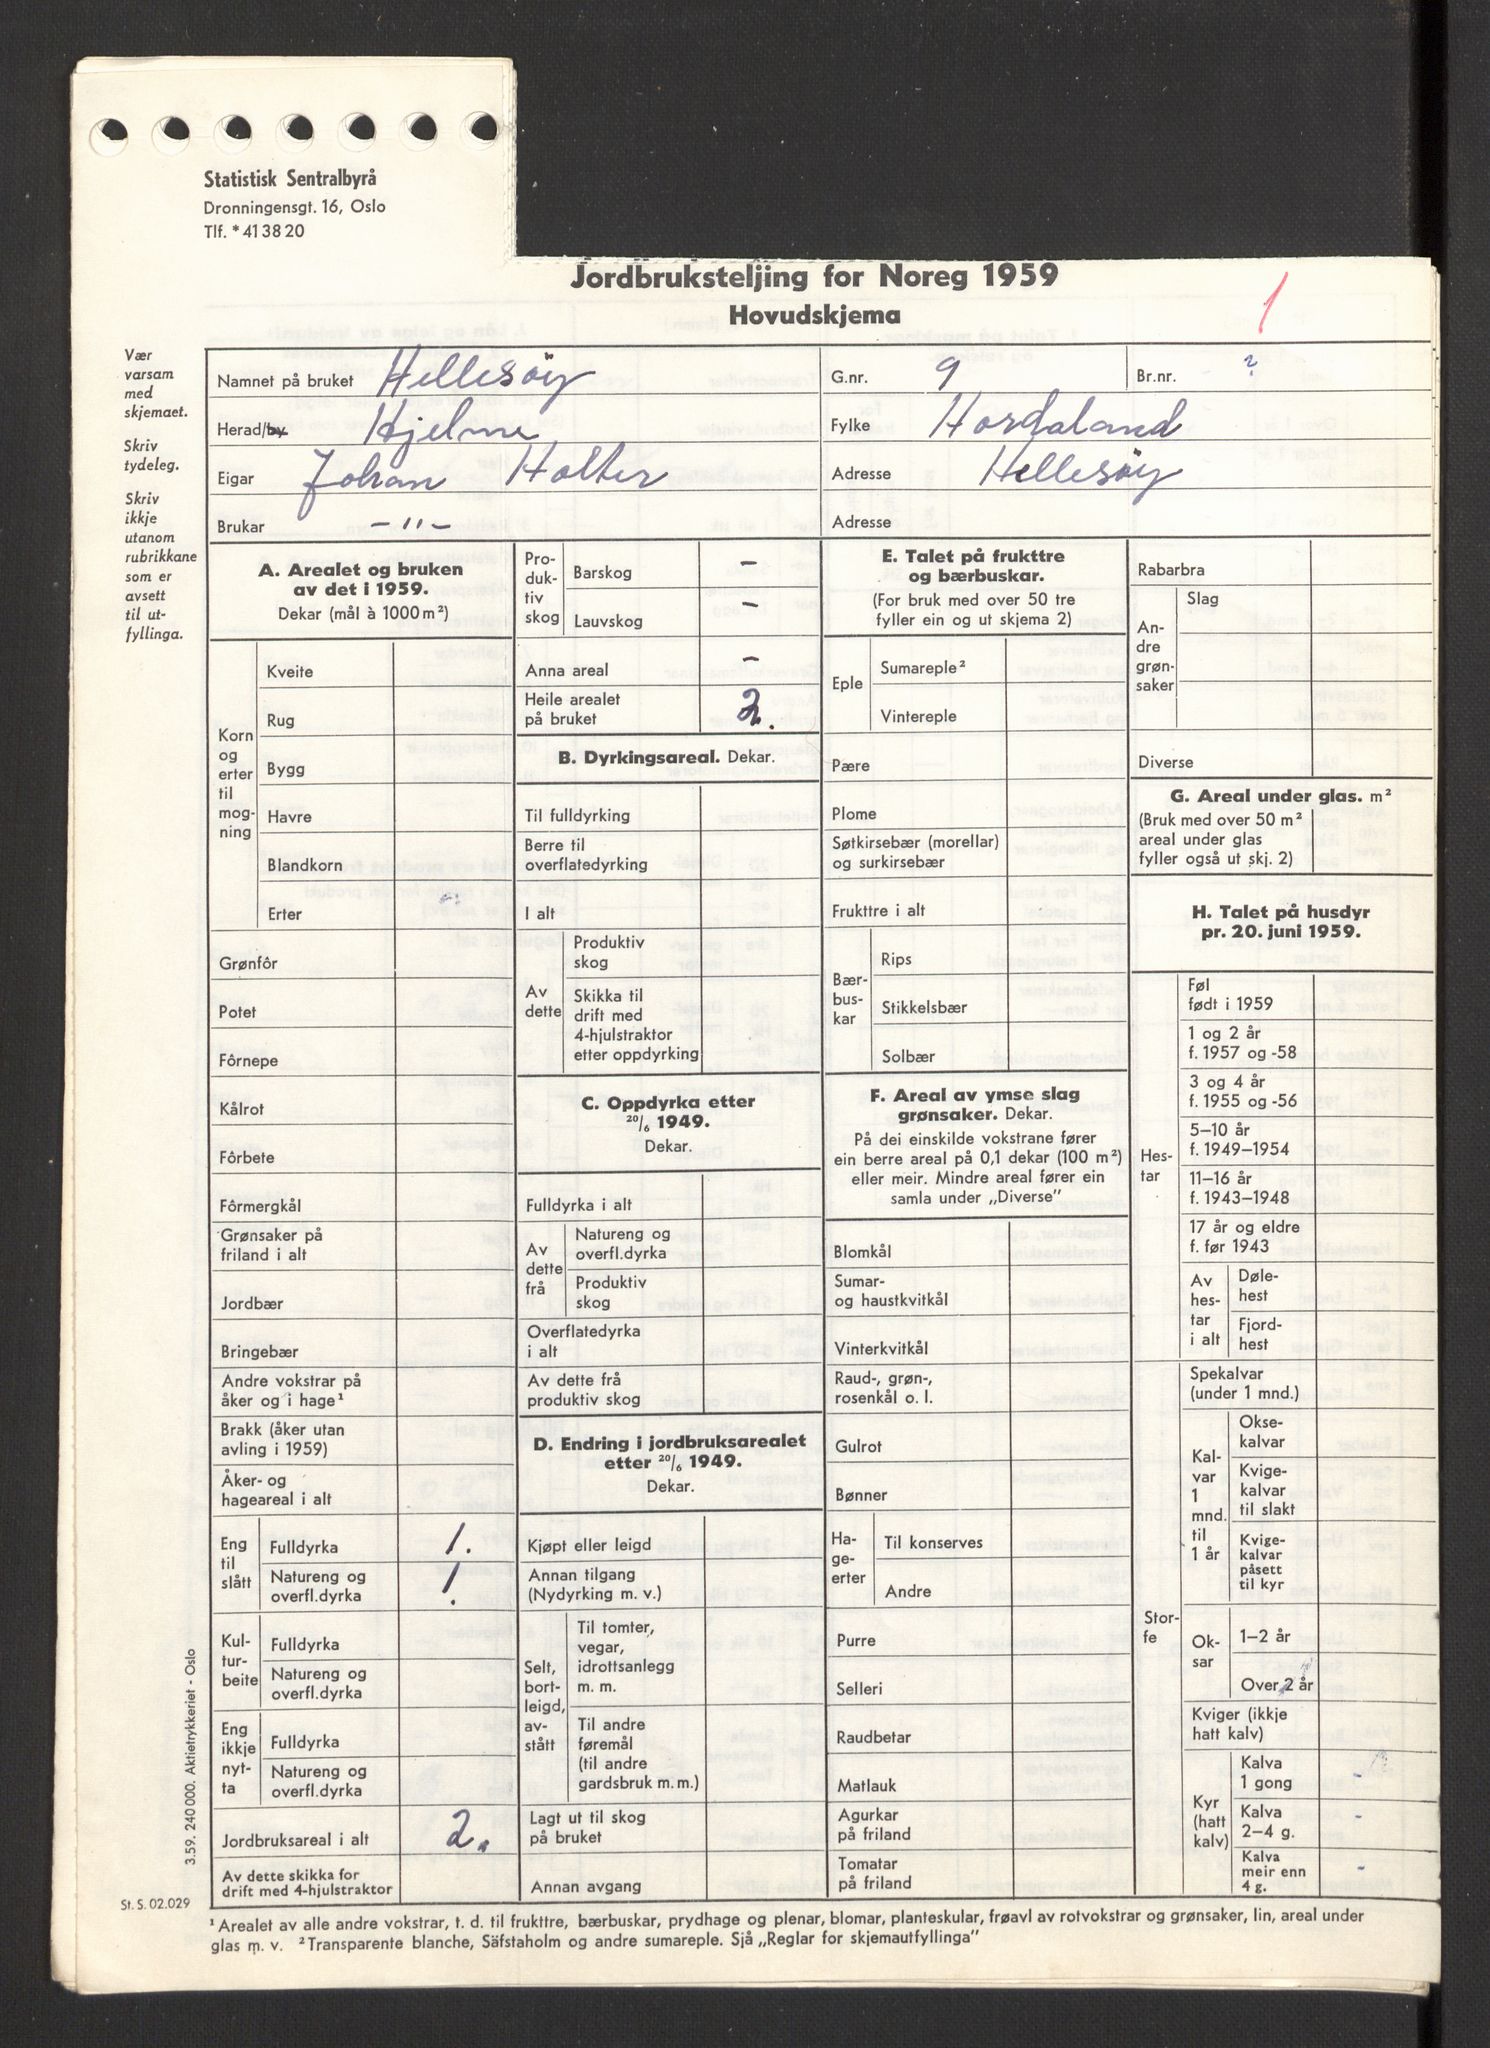 Statistisk Sentralbyrå
Dronningensgt. 16, Oslo
Tlf. * 41 38 20
Jordbruksteljing for Noreg 1959
Hovudskjema
1
Vær
varsam
med
skjemaet.
Skriv
tydeleg.
Skriv
ikkje
utanom
rubrikkane
som er
avsett
til ut-
fyllinga.
Namnet på bruket Hellesöy G.nr. 9 Br.nr. ?
Herad/by Hjelme Fylke Hordaland
Eigar Johan Holter Adresse Hellesöy
Brukar -"- Adresse
A. Arealet og bruken
av det i 1959.
Dekar (mål à 1000 m²)
Korn
og
erter
til
mog-
ning
Kveite
Rug
Bygg
Havre
Blandkorn
Erter
Grønfôr
Potet
Fôrnepe
Kålrot
Fôrbete
Fôrmergkål
Grønsaker på
friland i alt
Jordbær
Bringebær
Andre vokstrar på
åker og i hage¹
Brakk (åker utan
avling i 1959)
Åker- og
hageareal i alt
Eng
til
slått
Fulldyrka 1.
Natureng og
overfl.dyrka 1.
Kul-
tur-
beite
Fulldyrka
Natureng og
overfl.dyrka
Eng
ikkje
nyt-
ta
Fulldyrka
Natureng og
overfl.dyrka
Jordbruksareal i alt 2.
Av dette skikka for
drift med 4-hjulstraktor
Pro-
duk-
tiv
skog
Barskog –
Lauvskog –
Anna areal –
Heile arealet
på bruket 2.
B. Dyrkingsareal. Dekar.
Til fulldyrking
Berre til
overflatedyrking
I alt
Av
dette
Produktiv
skog
Skikka til
drift med
4-hjulstraktor
etter oppdyrking
C. Oppdyrka etter
20/6 1949.
Dekar.
Fulldyrka i alt
Av
dette
frå
Natureng og
overfl.dyrka
Produktiv
skog
Overflatedyrka
i alt
Av dette frå
produktiv skog
D. Endring i jordbruksarealet
etter 20/6 1949.
Dekar.
Kjøpt eller leigd
Annan tilgang
(Nydyrking m. v.)
Selt,
bort-
leigd,
av-
stått
Til tomter,
vegar,
idrottsanlegg
m. m.
Til andre
føremål
(til andre
gardsbruk m. m.)
Lagt ut til skog
på bruket
Annan avgang
E. Talet på frukttre
og bærbuskar.
(For bruk med over 50 tre
fyller ein og ut skjema 2)
Eple
Sumareple²
Vintereple
Pære
Plome
Søtkirsebær (morellar)
og surkirsebær
Frukttre i alt
Bær-
bus-
kar
Rips
Stikkelsbær
Solbær
F. Areal av ymse slag
grønsaker. Dekar.
På dei einskilde vokstrane fører
ein berre areal på 0,1 dekar (100 m²)
eller meir. Mindre areal fører ein
samla under „Diverse”
Blomkål
Sumar-
og haustkvitkål
Vinterkvitkål
Raud-, grøn-,
rosenkål o. l.
Gulrot
Bønner
Ha-
ge-
erter
Til konserves
Andre
Purre
Selleri
Raudbetar
Matlauk
Agurkar
på friland
Tomatar
på friland
Rabarbra
An-
dre
grøn-
saker
Slag
Diverse
G. Areal under glas. m²
(Bruk med over 50 m²
areal under glas
fyller også ut skj. 2)
H. Talet på husdyr
pr. 20. juni 1959.
Hes-
tar
Føl
født i 1959
1 og 2 år
f. 1957 og -58
3 og 4 år
f. 1955 og -56
5–10 år
f. 1949–1954
11–16 år
f. 1943–1948
17 år og eldre
f. før 1943
Av
hes-
tar
i alt
Døle-
hest
Fjord-
hest
Stor-
fe
Spekalvar
(under 1 mnd.)
Kal-
var
1
mnd.
til
1 år
Okse-
kalvar
Kvige-
kalvar
til slakt
Kvige-
kalvar
påsett
til kyr
Ok-
sar
1–2 år
Over 2 år
Kviger (ikkje
hatt kalv)
Kyr
(hatt
kalv)
Kalva
1 gong -
Kalva
2–4 g. -
Kalva
meir enn
4 g. -
3.59. 240 000. Aktietrykkeriet - Oslo
St. S. 02.029
¹ Arealet av alle andre vokstrar, t. d. til frukttre, bærbuskar, prydhage og plenar, blomar, planteskular, frøavl av rotvokstrar og grønsaker, lin, areal under
glas m. v. ² Transparente blanche, Säfstaholm og andre sumareple. Sjå „Reglar for skjemautfyllinga”